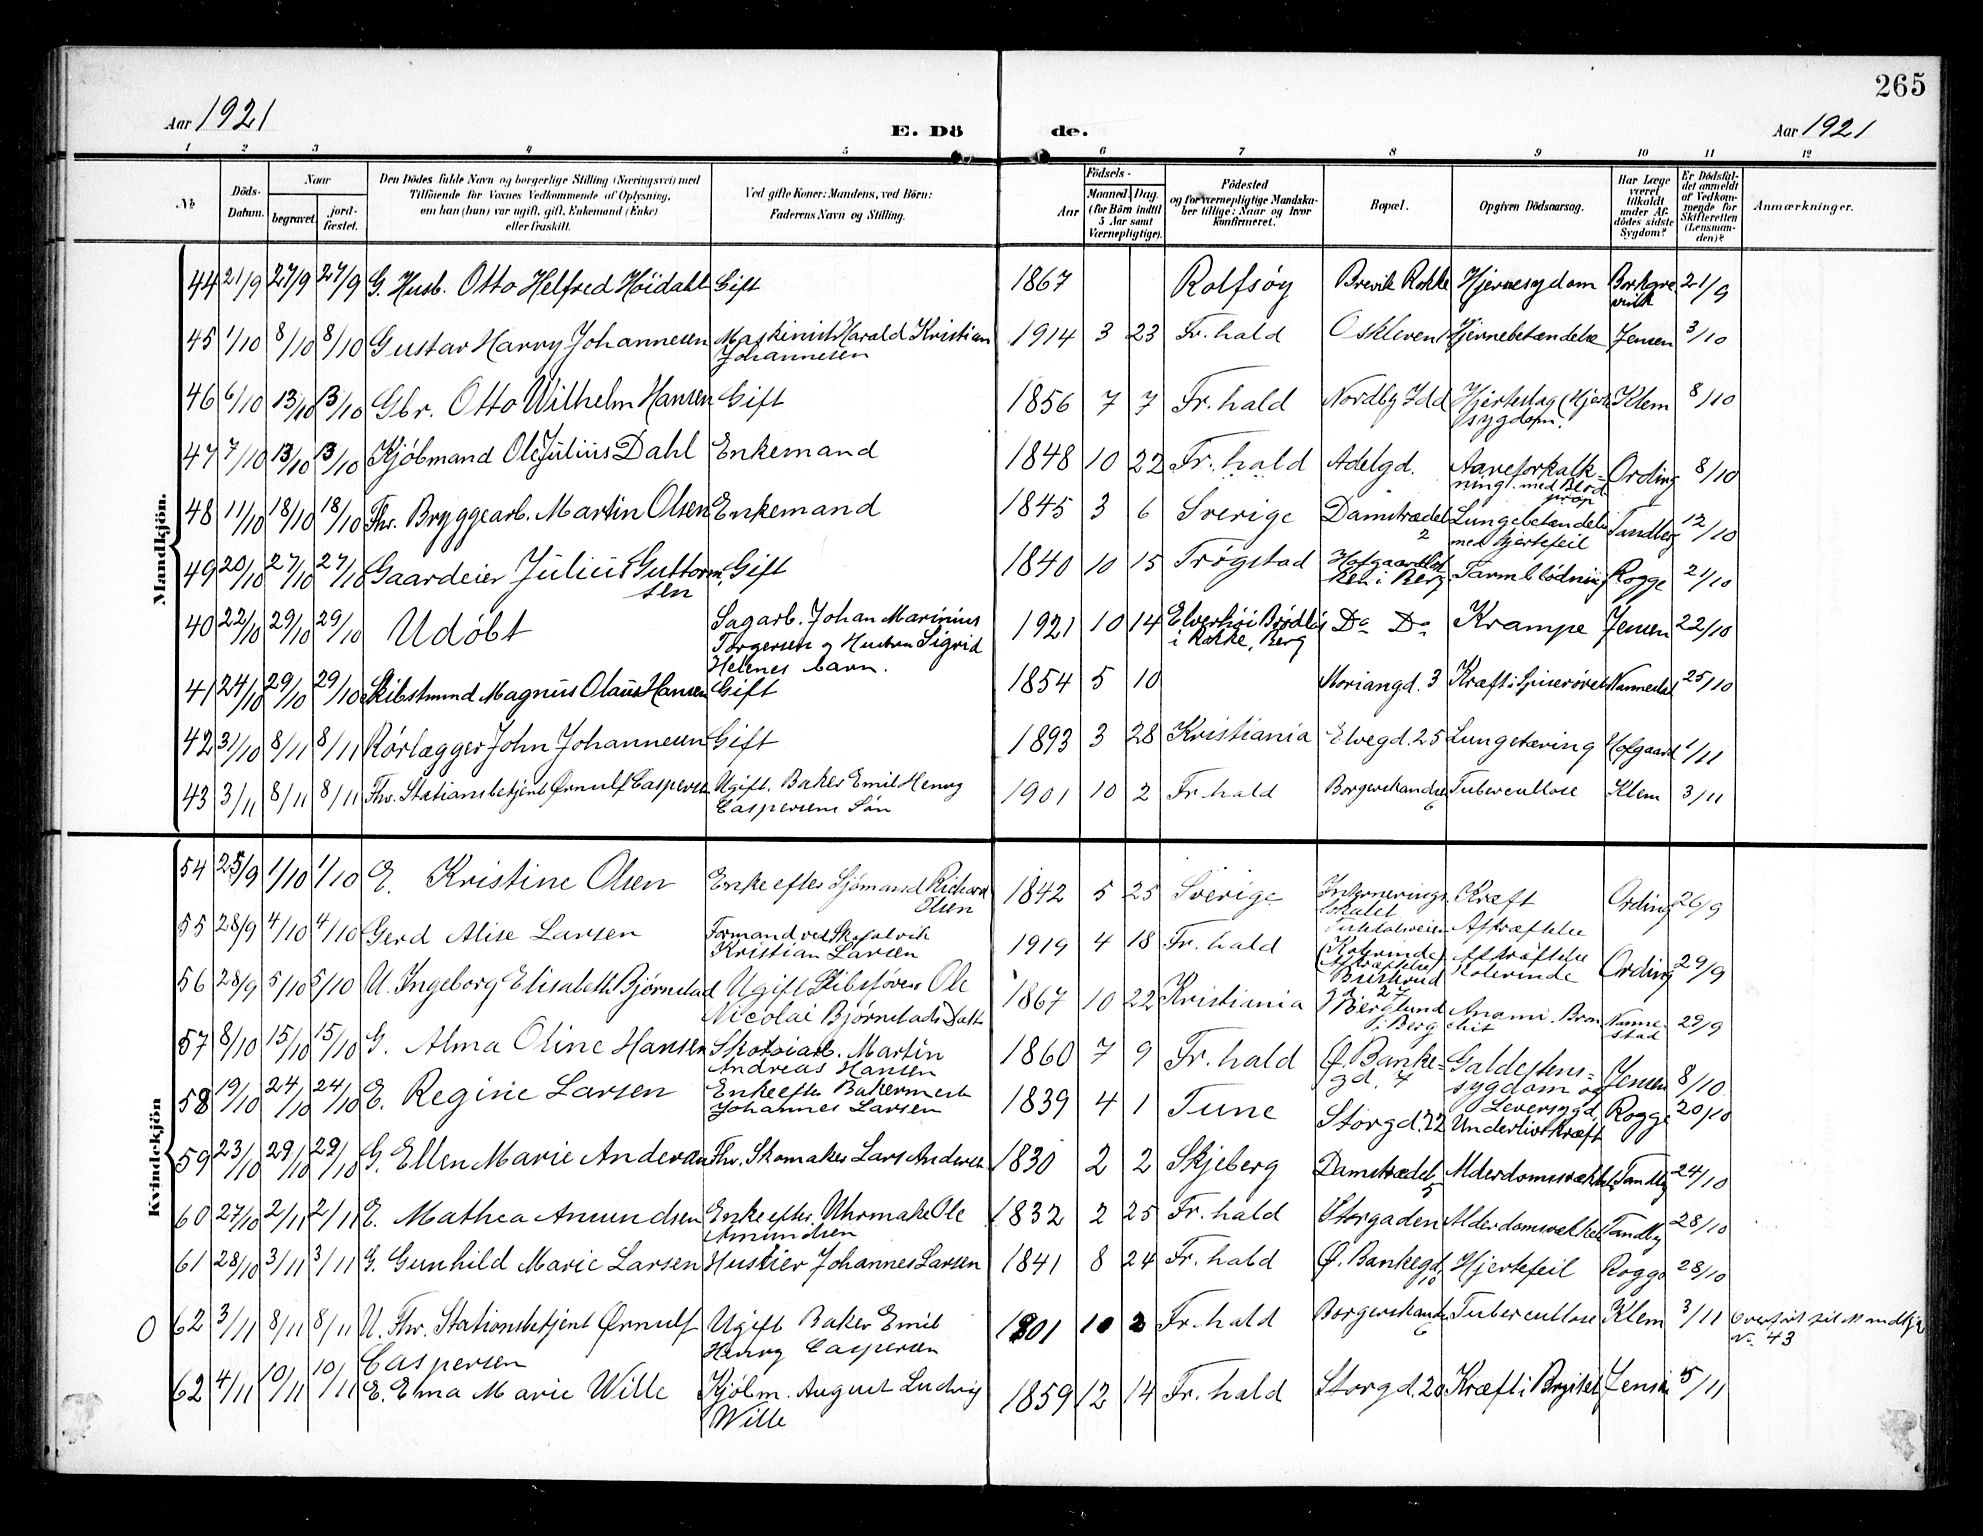 265
Aar 1921
E. Dö
de.
Aar 1921
1 2 3 4 5 6 7 8 9 10 11 12
No
Döds-
Datum.
Naar
begravet.
jord-
fæstet.
Den Dödes fulde Navn og borgerlige Stilling (Næringsvei) med
Tilföiende for Voxnes Vedkommende af Oplysning,
om han (hun) var ugift, gift, Enkemand (Enke)
eller fraskilt.
Ved gifte Koner: Mandens, ved Börn:
Faderens Navn og Stilling.
Födsels-
Aar
Maaned. Dag.
(for Börn indtil
5 Aar samt
Værnepligtige).
Födested
og for værnepligtige Mandska-
ber tillige: Naar og hvor
konfirmeret.
Bopæl.
Opgiven Dödsaarsag.
Har Læge
været
tilkaldt
under Af-
dödes sidste
Sygdom?
Er Dödsfal-
det anmeldt
af Vedkom-
mende for
Skifteretten
(Lensman-
den)?
Anmærkninger.
Mandkjön.
44 21/9 27/9 27/9 G. Husb. Otto Helfred Höidahl Gift 1867 Rolfsøy Brevik Rokke Hjernesygdom Borkgre 21/9
vink
45 1/10 8/10 8/10 Gustav Harry Johannesen Maskinist Harald Kristian 1914 3 23 Fr. hald Oskleven Hjernebetændelse Jensen 3/10
Johannesen
46 6/10 13/10 13/10 Gbr. Otto Wilhelm Hansen Gift 1856 7 7 Fr. hald Nordby Idd Hjerteslag (Hjerte Klem 8/10
sygdom.
47 7/10 13/10 13/10 Kjöbmand Ole Julius Dahl Enkemand 1848 10 22 Fr. hald Adelgd. Aareforkalk- Ording 8/10
ning. med Blod
prop
48 11/10 18/10 18/10 Fhv. Bryggearb. Martin Olsen Enkemand 1845 3 6 Sverige Damstrædet Lungebetændelse Tandberg 12/10
2 med Hjertefeil
49 20/10 27/10 27/10 Gaardeier Julius Guttorm Gift 1840 10 15 Trøgstad Hofgaardløk Tarmblødning Rogge 21/10
sen ken i Berg
40 22/10 29/10 29/10 Udöbt Sagarb. Johan Marinius 1921 10 14 Elverhöi Brödløs Do Do Krampe Jensen 22/10
Torgersen og Hustru Sigrid i Rokke, Berg
Helenes barn.
41 24/10 29/10 29/10 Skibstmnd Magnus Olaus Hansen Gift 1854 5 10 Moriangd. 3 Kræft i Spiserøret Nannestad 25/10
42 31/10 8/11 8/11 Rörlægger John Johannesen Gift 1893 3 28 Kristiania Elvegd. 25 Lungetæring Hofgaard 1/11
43 3/11 8/11 8/11 Fhv. Stationsbetjent Ørnulf Caspersen Ugift. Baker Emil Henry 1901 10 2 Fr. hald Borgerskandse Tuberculose Klem 3/11
Caspersens Søn 6
Kvindekjön
54 25/9 1/10 1/10 E. Kristine Olsen Enke efter Sjömand Richard 1842 5 25 Sverige Internerings Kræft Ording 26/9
Olsen lokalet
55 28/9 4/10 4/10 Gerd Alise Larsen Formand ved Skofabrik 1919 4 18 Fr. hald Afkræftelse
Kristian Larsen (Kolerinde) Afkræftelse Ording 29/9
(Afkræftelse) Kolerinde
56 28/9 5/10 5/10 U. Ingeborg Elisabeth Bjørnstad Ugift Skibsfører Ole 1867 10 22 Kristiania Bjerglund Anæmi. Bron Nanne- 29/9
Nicolai Bjørnstads Datter i Berg chit stad
57 8/10 15/10 15/10 G. Alma Oline Hansen Skotøiarb. Martin 1860 7 9 Fr. hald Ø. Banke- Galdestens- Jensen 8/10
Andreas Hansen gd. 7 sygdom og
Leversygd.
58 19/10 24/10 24/10 E. Regine Larsen Enke efter Bakermest. 1839 4 1 Tune Storgd. 22 Underlivskræft Rogge 20/10
Johannes Larsen
59 23/10 29/10 29/10 G. Ellen Marie Andersen Fhv. Skomaker Lars Andersen 1830 2 2 Skjeberg Damstrædet Alderdomssvækkelse Tandbg 24/10
5
60 27/10 2/11 2/11 E. Mathea Amundsen Enke efter Uhrmaker Ole 1832 2 25 Fr. hald Storgaden Alderdomsvækkelse Tandbg 28/10
Amundsen
61 28/10 3/11 3/11 G. Gunhild Marie Larsen Huseier Johannes Larsen 1841 8 24 Fr. hald Ø. Bankegd. Hjertefeil Rogge 28/10
10
0 62 3/11 8/11 8/11 U. Fhv. Stationsbetjent Ørnulf Ugift Baker Emil 1901 10 2 Fr. hald Borgerskandse Tuberculose Klem 3/11 Overført til Mandkjø
Caspersen Henry Caspersen 6 No 43
62 4/11 10/11 10/11 E. Elna Marie Wille Kjöbm. August Ludvig 1859 12 14 Fr. hald Storgd. 20 Kræft i Brystet Jensen 5/11
Wille